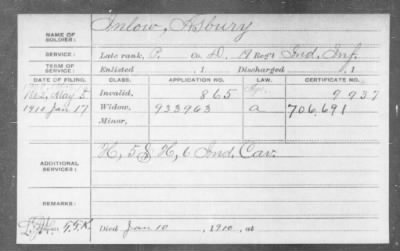 NAME OF SOLDIER: Inlow, Asbury
SERVICE: Late rank, P. Co. D. 19 Reg't Ind. Inf.
TERM OF SERVICE: Enlisted , 1 Discharged , 1
DATE OF FILING. CLASS. APPLICATION NO. LAW. CERTIFICATE NO.
1862, May Invalid, 865 9937
1910 Jan 17 Widow, 933963 a 706,691
Minor,
ADDITIONAL SERVICES: H, 5 & H, 6 Ind. Cav.
REMARKS:
Died Jan 10, 1910, at